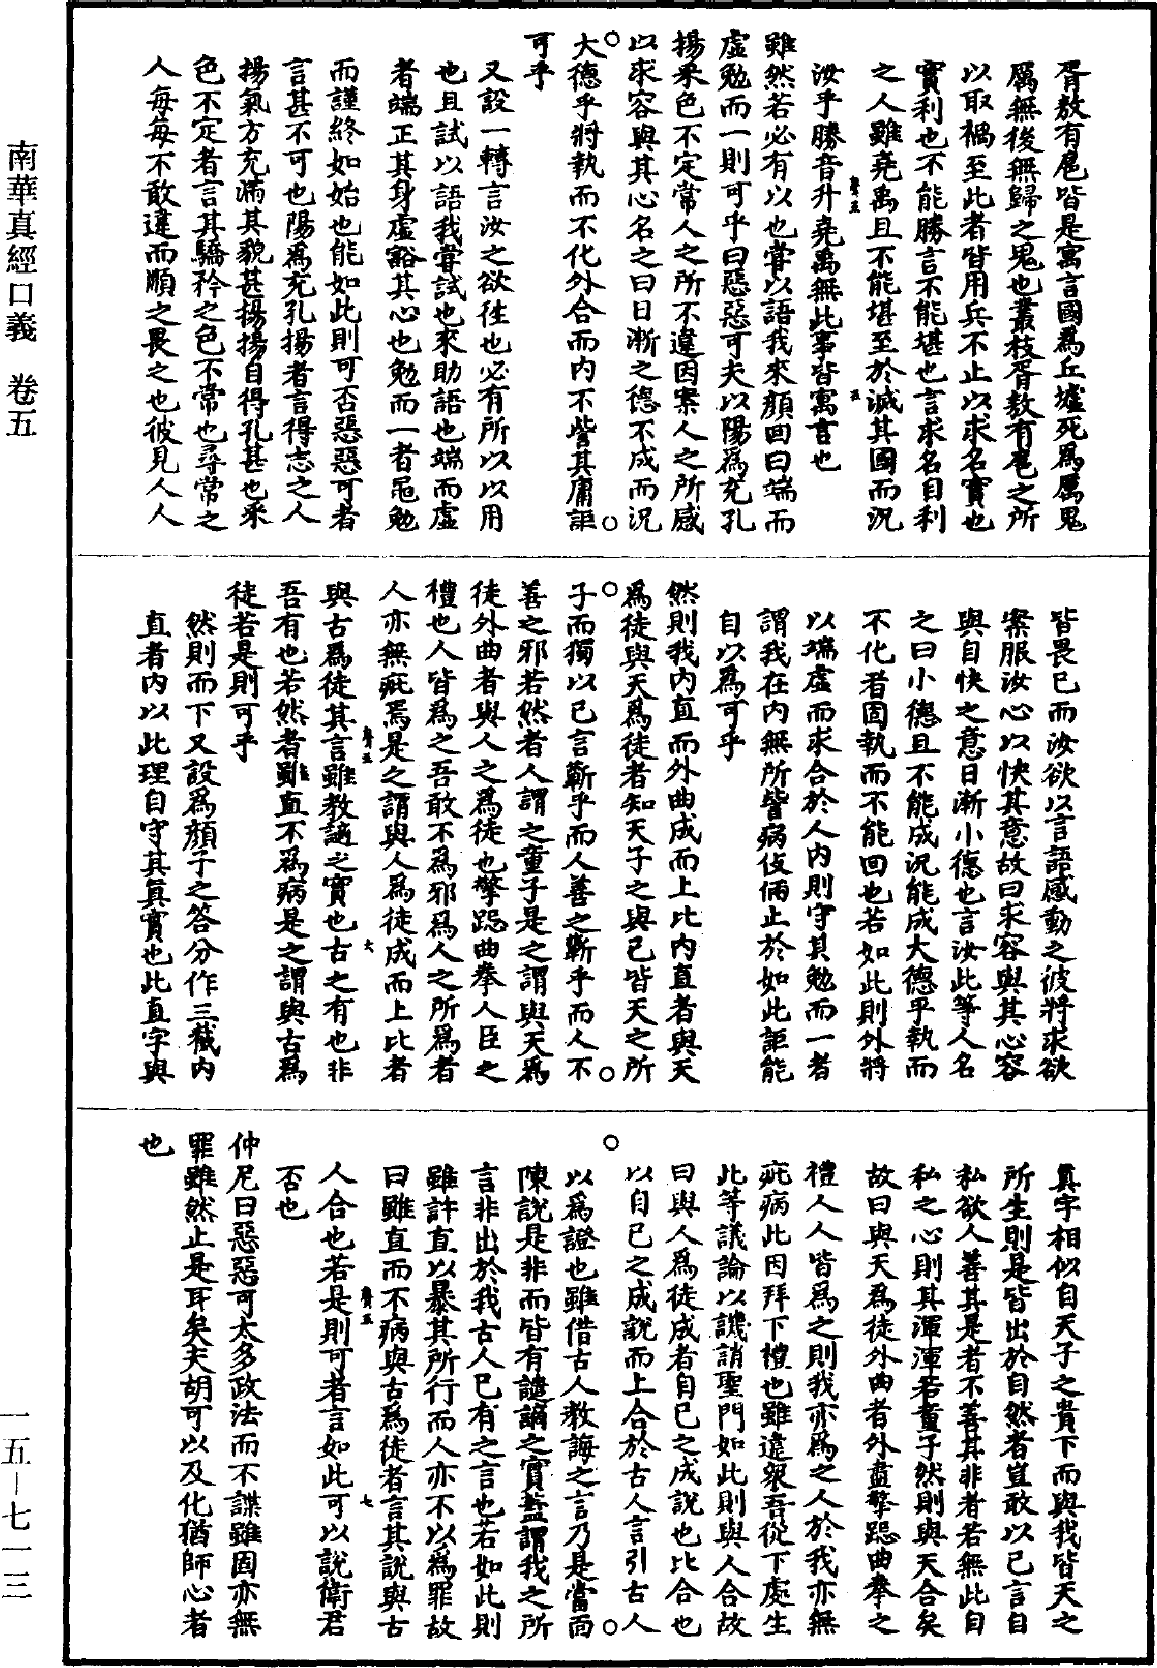 南華真經口義　卷五
一五—七一三
胥敖有扈皆是寓言國為丘墟死為厲鬼
厲無後無歸之鬼也叢枝胥敖有扈之所
以取禍至此者皆用兵不止以求名實也
實利也不能勝言不能堪也言求名自利
之人雖堯禹且不能堪至於滅其國而況
汝乎勝音升堯禹無此事皆寓言也
雖然若必有以也嘗以語我來顏回曰端而
虛勉而一則可乎曰惡惡可夫以陽為充孔
揚采色不定常人之所不違因案人之所感
以求容與其心名之曰日漸之德不成而況
大德乎將執而不化外合而內不訾其庸詎
可乎
又設一轉言汝之欲往也必有所以以用
也且試以語我嘗試也來助語也端而虛
者端正其身虛豁其心也勉而一者黽勉
而謹終如始也能如此則可否惡惡可者
言甚不可也陽為充孔揚者言得志之人
揚氣方充滿其貌甚揚揚自得孔甚也采
色不定者言其驕矜之色不常也尋常之
人每每不敢違而順之畏之也彼見人人
皆畏己而汝欲以言語感動之彼將求欲
案服汝心以快其意故曰求容與其心容
與自快之意日漸小德也言汝此等人名
之曰小德且不能成況能成大德乎執而
不化者固執而不能回也若如此則外將
以端虛而求合於人內則守其勉而一者
謂我在內無所訾病伎倆止於如此詎能
自以為可乎
然則我內直而外曲成而上比內直者與天
為徒與天為徒者知天子之與己皆天之所
子而獨以己言蘄乎而人善之蘄乎而人不
善之邪若然者人謂之童子是之謂與天為
徒外曲者與人之為徒也擎跽曲拳人臣之
禮也人皆為之吾敢不為邪為人之所為者
人亦無疵焉是之謂與人為徒成而上比者
與古為徒其言雖教謫之實也古之有也非
吾有也若然者雖直不為病是之謂與古為
徒若是則可乎
然則而下又設為顏子之答分作三截內
直者內以此理自守其真實也此直字與
真字相似自天子之貴下而與我皆天之
所生則是皆出於自然者豈敢以己言自
私欲人善其是者不善其非者若無此自
私之心則其渾渾若童子然則與天合矣
故曰與天為徒外曲者外盡擎跽曲拳之
禮人人皆為之則我亦為之人於我亦無
疵病此因拜下禮也雖違眾吾從下處生
此等議論以譏誚聖門如此則與人合故
曰與人為徒成者自己之成說也比合也
以自己之成說而上合於古人言引古人
以為證也雖借古人教誨之言乃是當面
陳說是非而皆有譴謫之實蓋謂我之所
言非出於我古人已有之言也若如此則
雖許直以暴其所行而人亦不以為罪故
曰雖直而不病與古為徒者言其說與古
人合也若是則可者言如此可以說衛君
否也
仲尼曰惡惡可太多政法而不諜雖固亦無
罪雖然止是耳矣夫胡可以及化猶師心者
也